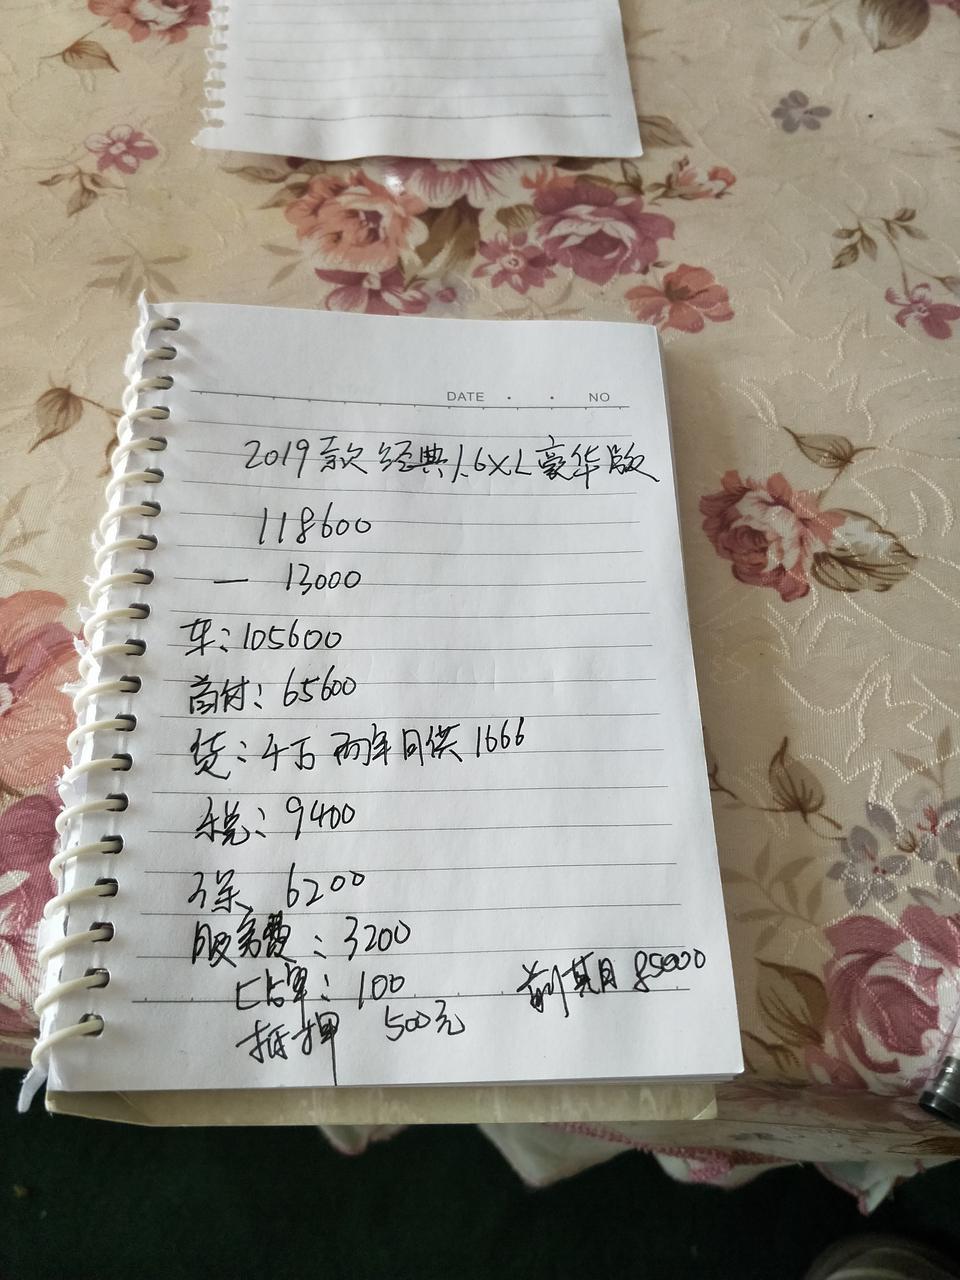 DATE · · NO
2019款经典1.6XL豪华版
118600
— 13000
车:105600
首付:65600
贷:4万 两年月供1666
税:9400
保、6200
服务费:3200
上牌:100
前期 85000
抵押 500元